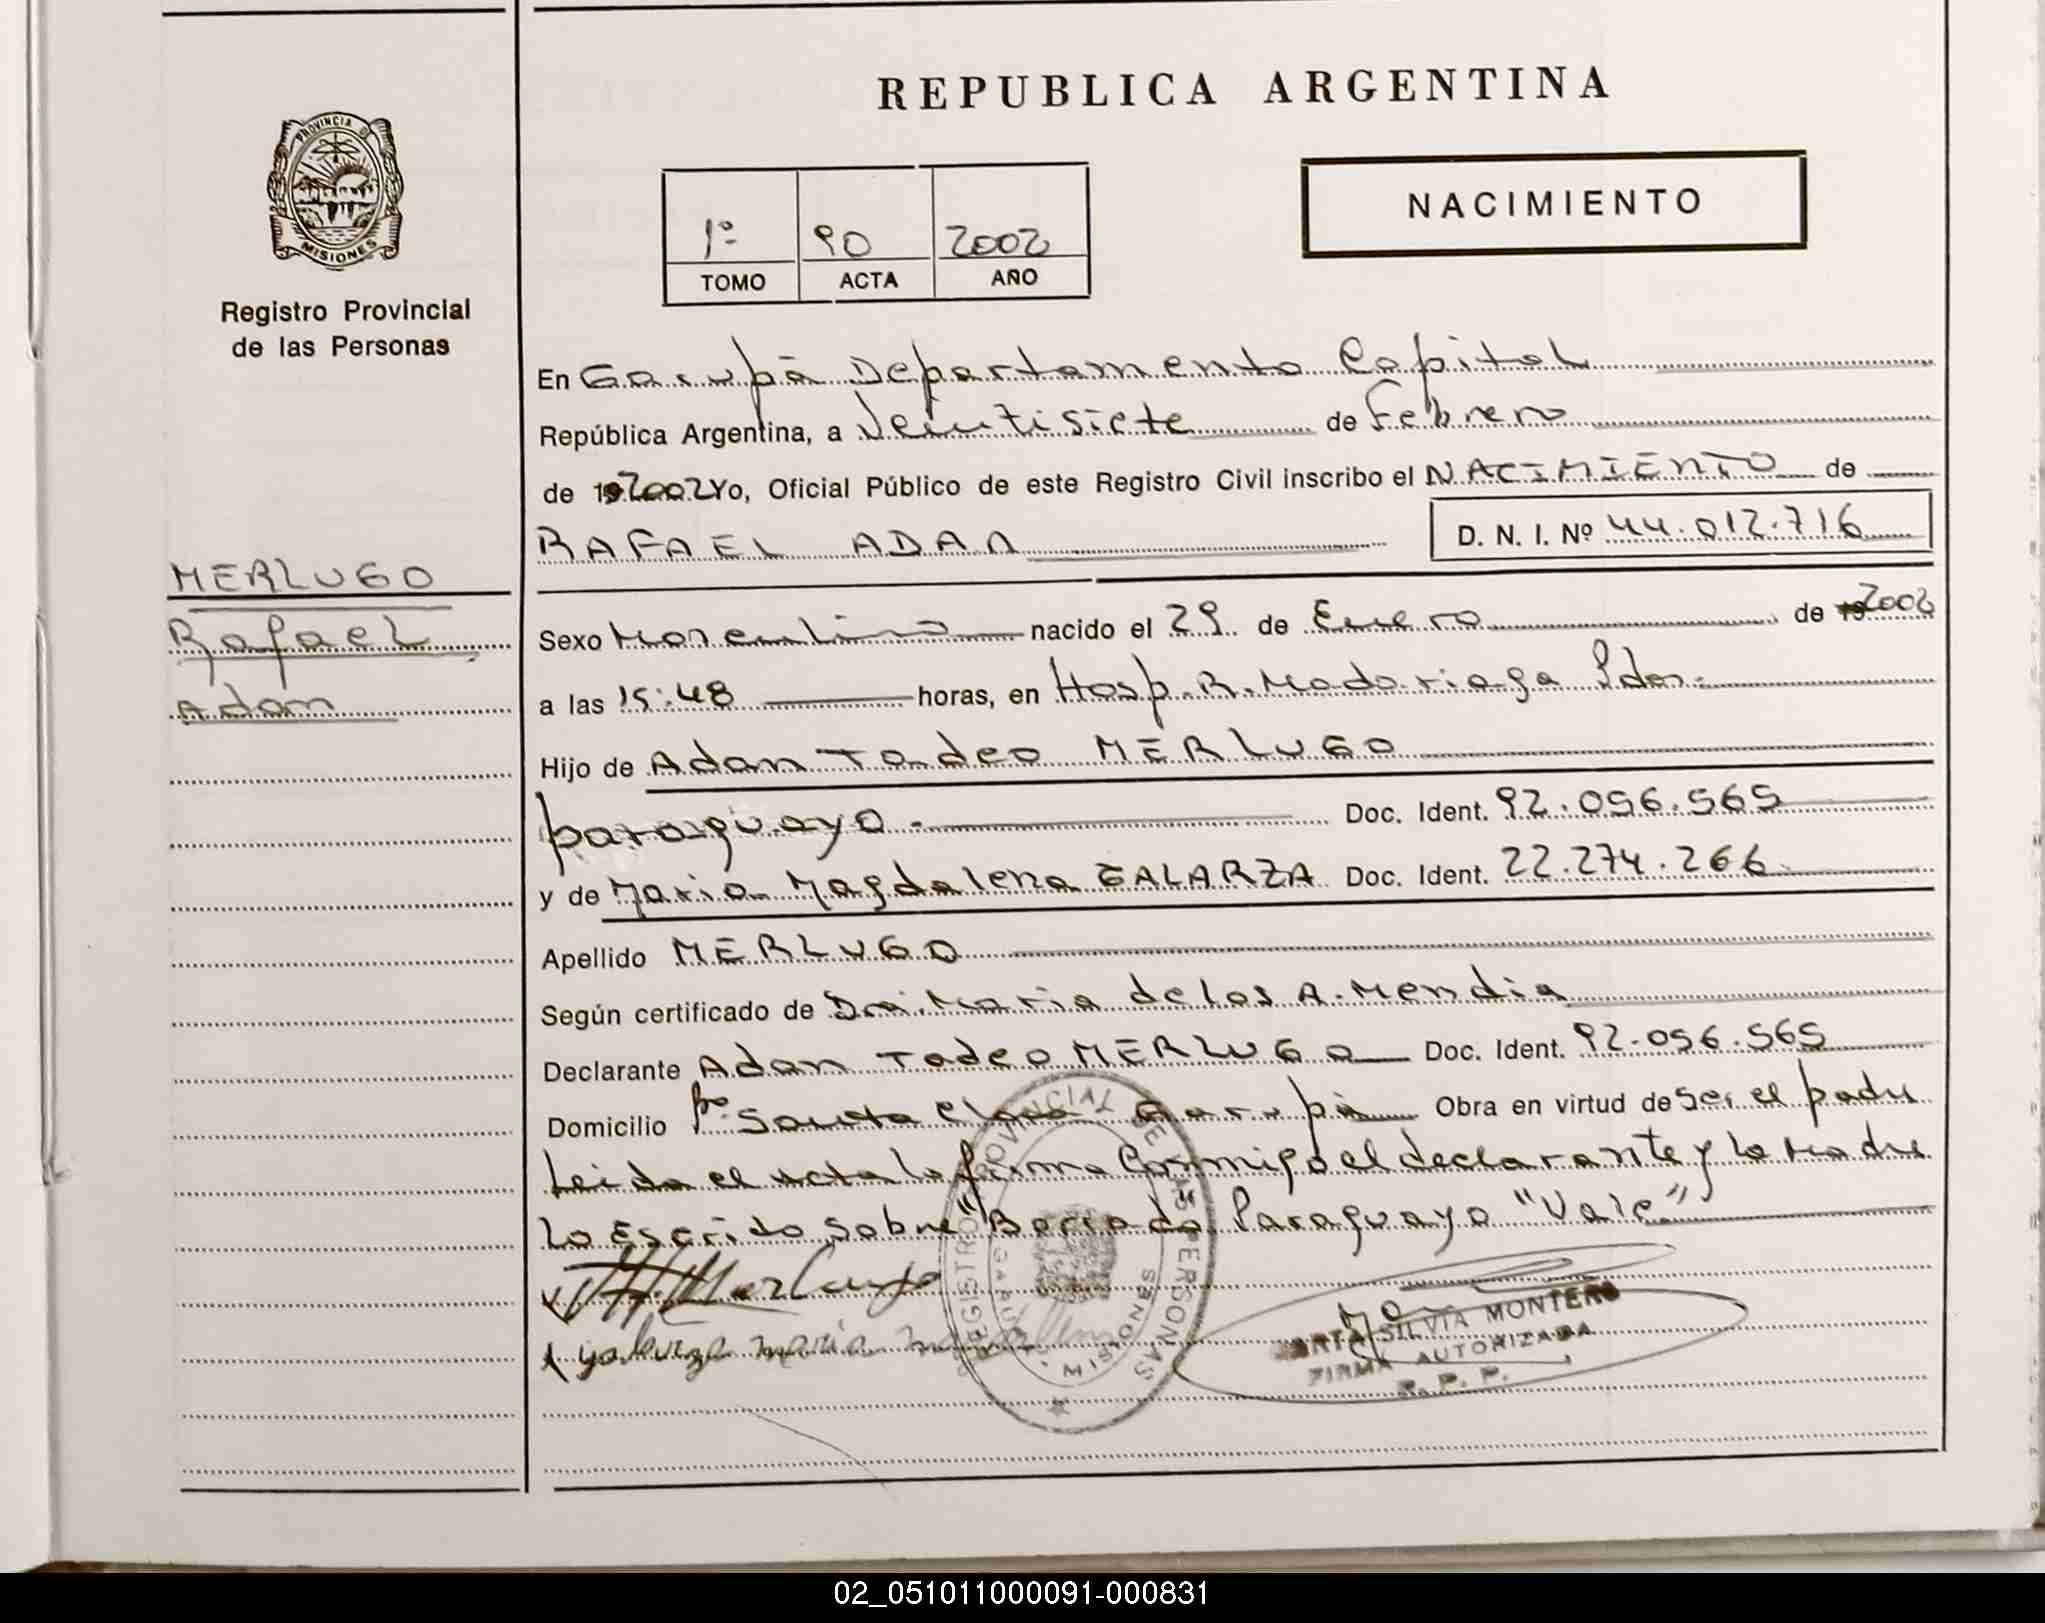 REPUBLICA ARGENTINA
PROVINCIA D
MISIONES
Registro Provincial
de las Personas
1º 90 2002
TOMO ACTA AÑO
NACIMIENTO
En Garupá Departamento Capital
República Argentina, a Veintisiete de Febrero
de 192002 Yo, Oficial Público de este Registro Civil inscribo el NACIMIENTO de
RAFAEL ADAN D. N. I. Nº 44.012.716
MERLUGO
Rafael
Adan
Sexo Masculino nacido el 29 de Enero de 192002
a las 15:48 horas, en Hosp. R. Madariaga Pdas.
Hijo de Adan Tadeo MERLUGO
paraguayo.- Doc. Ident. 92.056.565
y de Maria Magdalena GALARZA Doc. Ident. 22.274.266
Apellido MERLUGO
Según certificado de Dra. Maria de los A. Mendia
Declarante Adan Tadeo MERLUGO Doc. Ident. 92.056.565
Domicilio Bº Santa Clara Garupá Obra en virtud de Ser el padre
Leida el acta la firma Conmigo el declarante y la Madre
Lo Escrito Sobre "Borrado" Paraguayo "Vale"
Merlugo
galarza maria
REGISTRO PROVINCIAL DE LAS PERSONAS
GARUPA
MISIONES
MARTA SILVIA MONTERO
FIRMA AUTORIZADA
R. P. P.
02_051011000091-000831